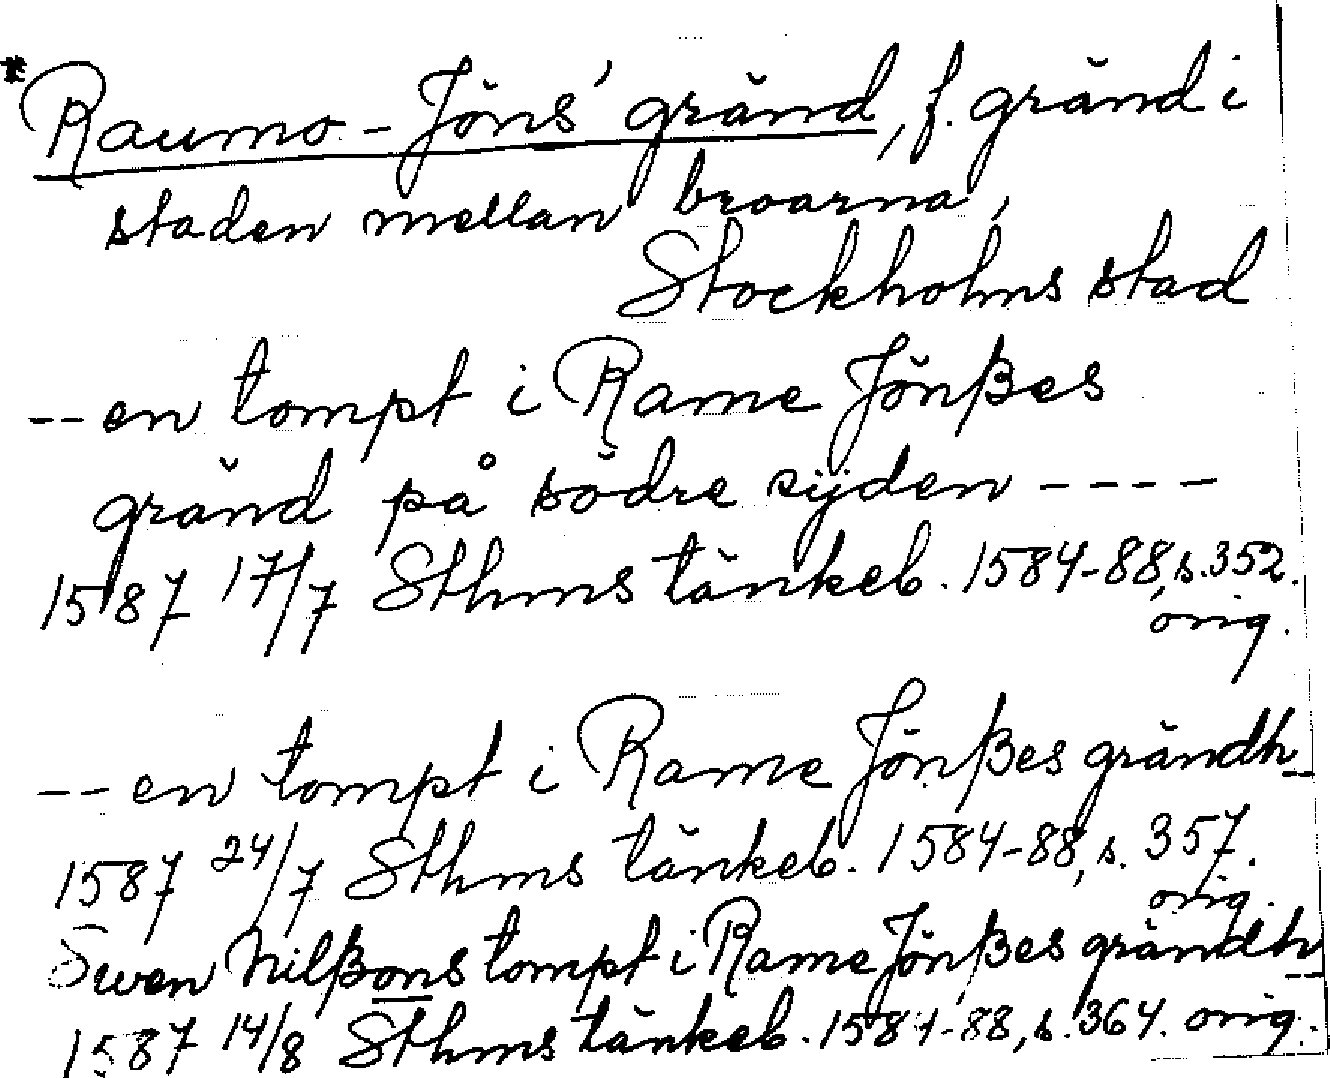 *Raumo-Jöns' gränd, f. gränd i
staden mellan broarna,
Stockholms stad
--en tompt i Rame Jönßes
gränd på södre sijden ----
1587 17/7 Sthms tänkeb. 1584-88, s. 352.
orig.
--en tompt i Rame Jönßes grändh_
1587 24/7 Sthms tänkeb. 1584-88, s. 357.
orig.
Swen Nilßons tompt i Rame Jönßes grändh--
1587 14/8 Sthms tänkeb. 1584-88, s. 364. orig.